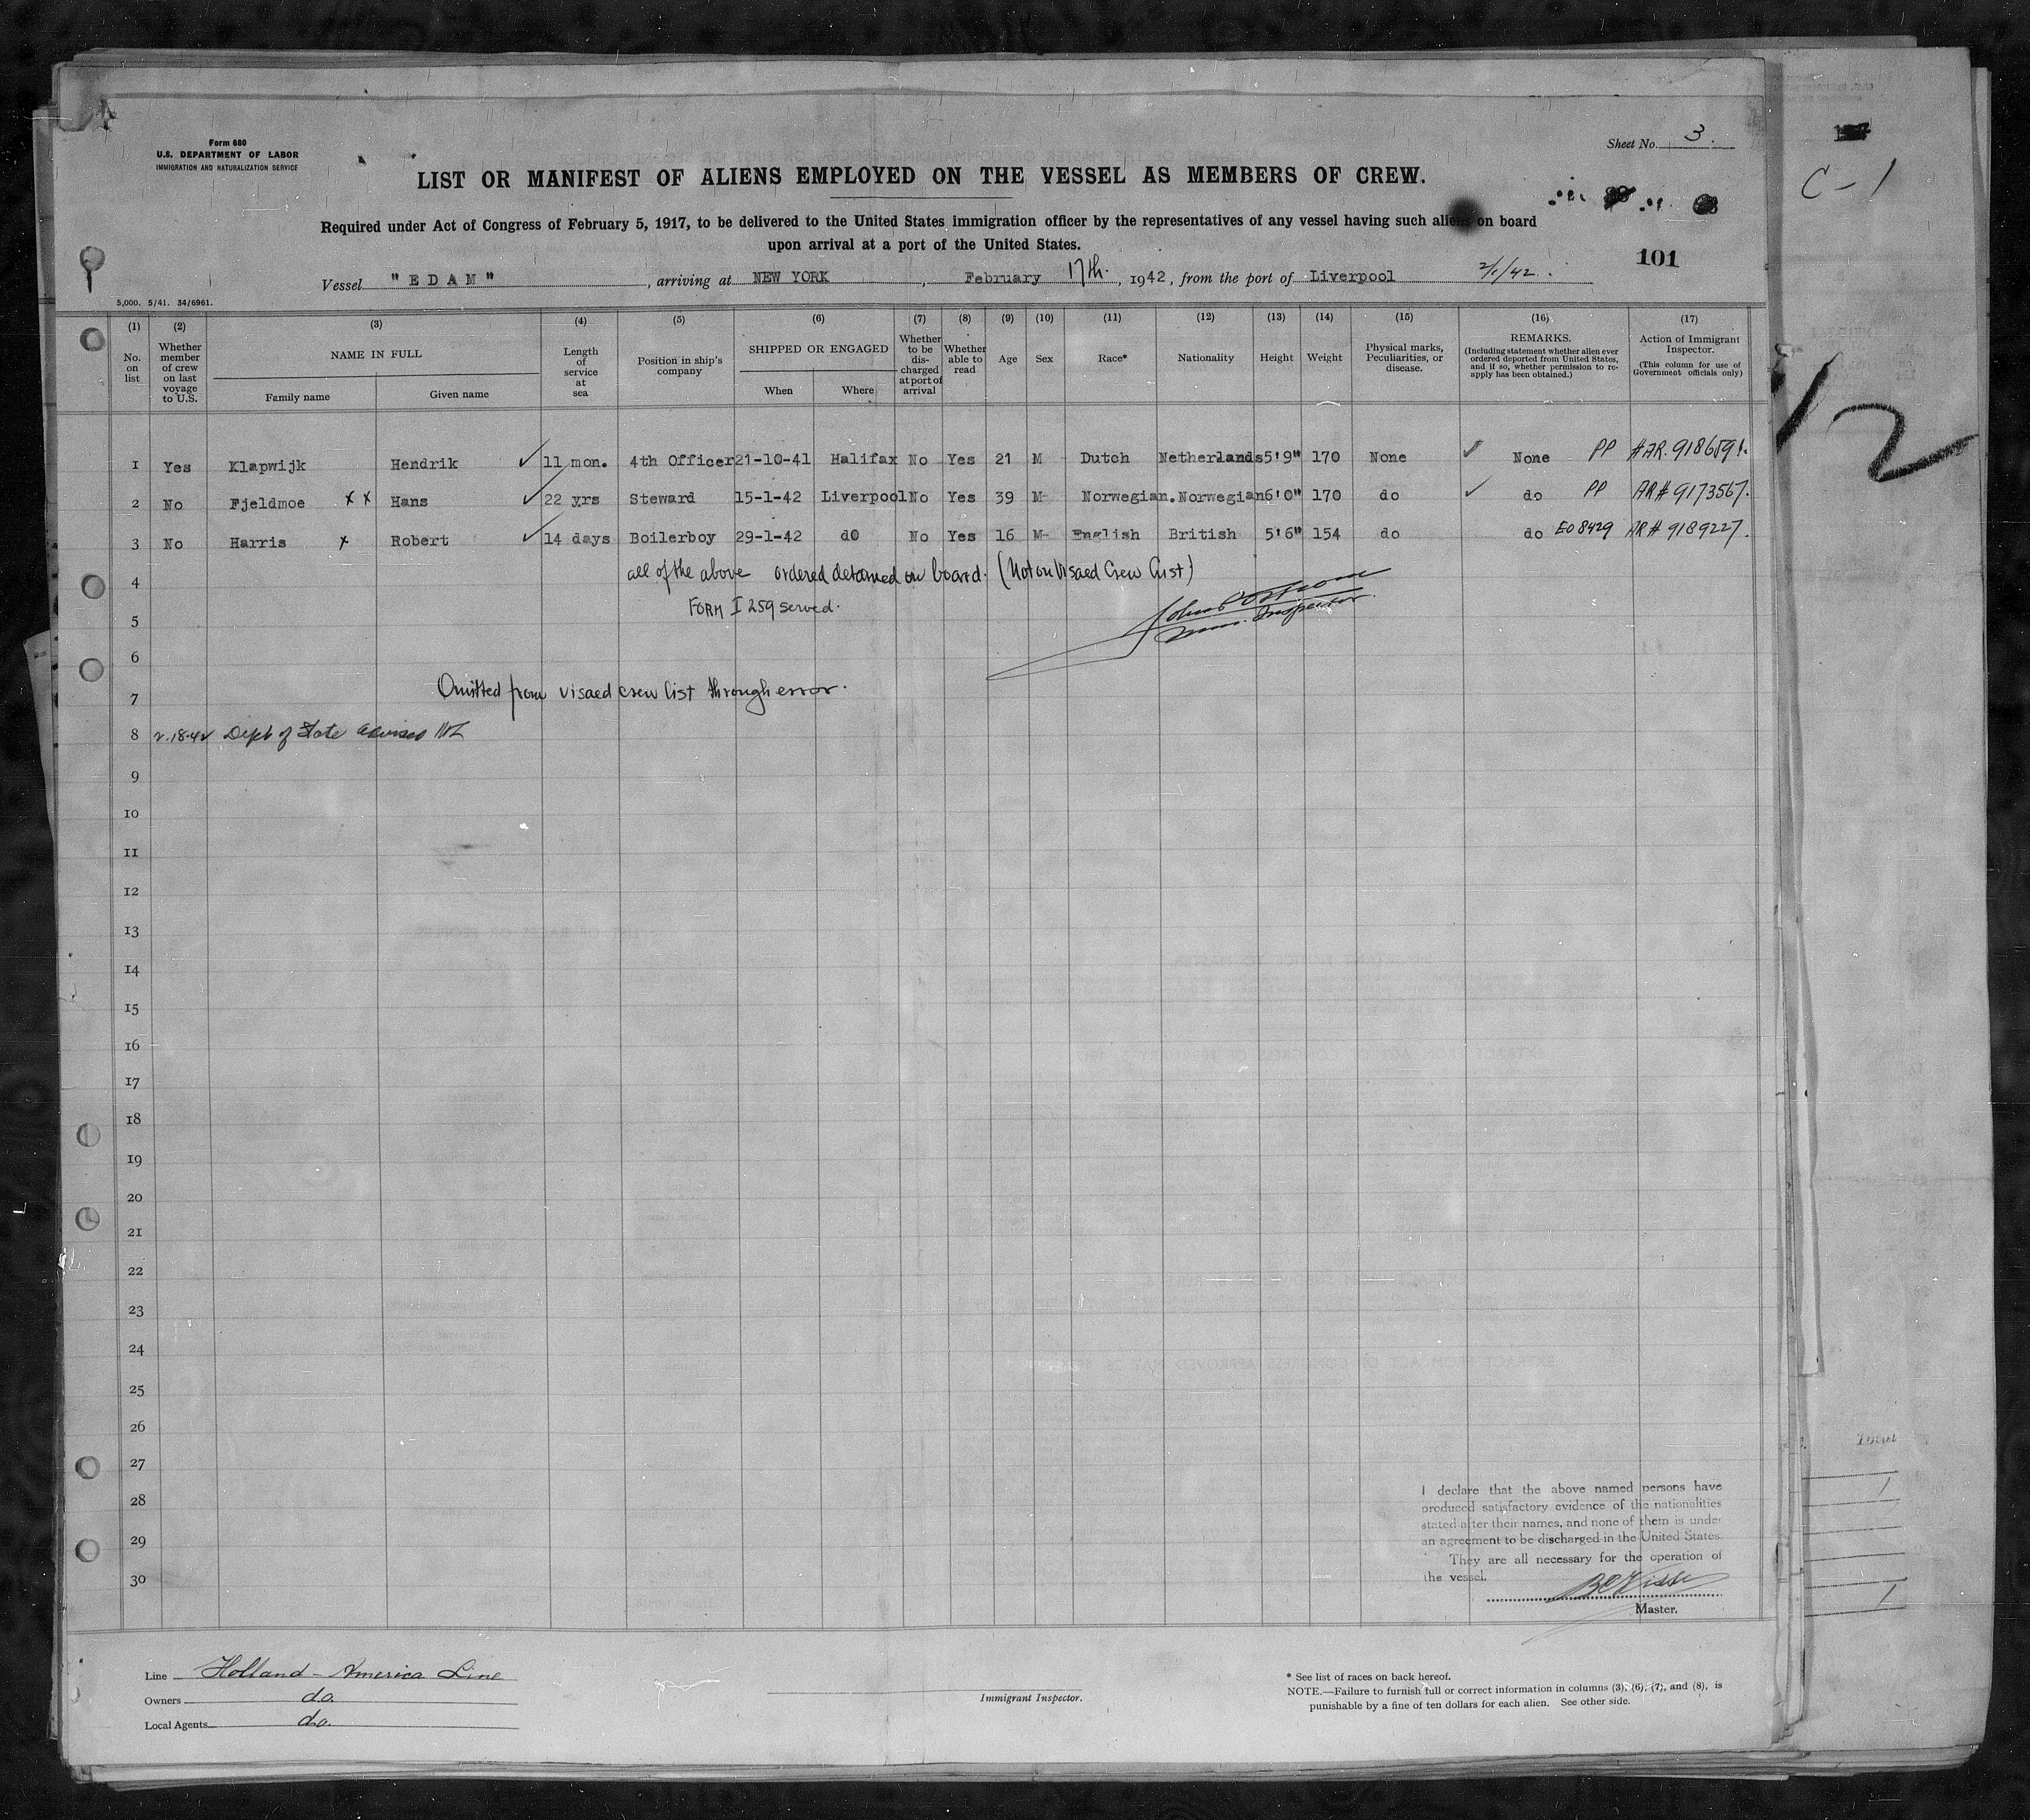 Form 680
U.S. DEPARTMENT OF LABOR
IMMIGRATION AND NATURALIZATION SERVICE
Sheet No. 3.
C-1
LIST OR MANIFEST OF ALIENS EMPLOYED ON THE VESSEL AS MEMBERS OF CREW.
Required under Act of Congress of February 5, 1917, to be delivered to the United States immigration officer by the representatives of any vessel having such aliens on board
upon arrival at a port of the United States.
101
Vessel "EDAM", arriving at NEW YORK, February 17th., 1942, from the port of Liverpool 2/1/42.
5,000. 5/41. 34/6961.
(1) (2) (3) (4) (5) (6) (7) (8) (9) (10) (11) (12) (13) (14) (15) (16) (17)
No. on list
Whether member of crew on last voyage to U.S.
NAME IN FULL
Family name
Given name
Length of service at sea
Position in ship's company
SHIPPED OR ENGAGED
When
Where
Whether to be discharged at port of arrival
Whether able to read
Age
Sex
Race*
Nationality
Height
Weight
Physical marks, Peculiarities, or disease.
REMARKS.
(Including statement whether alien ever ordered deported from United States, and if so, whether permission to re-apply has been obtained.)
Action of Immigrant Inspector.
(This column for use of Government officials only)
1 Yes Klapwijk Hendrik ✓ 11 mon. 4th Officer 21-10-41 Halifax No Yes 21 M Dutch Netherlands 5'9" 170 None ✓ None PP #AR.9186591.
2 No Fjeldmoe x x Hans ✓ 22 yrs Steward 15-1-42 Liverpool No Yes 39 M Norwegian. Norwegian 6'0" 170 do ✓ do PP AR# 9173567.
3 No Harris x Robert ✓ 14 days Boilerboy 29-1-42 do No Yes 16 M English British 5'6" 154 do do EO 8429 AR# 9189227.
4 all of the above ordered detained on board. (Not on Visaed Crew List)
5 FORM I 259 served.
Imm. Inspector.
6
7 Omitted from visaed crew list through error.
8 2.18.42 Dept of State advised
9
10
11
12
13
14
15
16
17
18
19
20
21
22
23
24
25
26
27
28
29
30
12
I declare that the above named persons have
produced satisfactory evidence of the nationalities
stated after their names, and none of them is under
an agreement to be discharged in the United States.
They are all necessary for the operation of
the vessel.
Master.
Line Holland-America Line
Owners do.
Local Agents do.
Immigrant Inspector.
* See list of races on back hereof.
NOTE.—Failure to furnish full or correct information in columns (3), (6), (7), and (8), is
punishable by a fine of ten dollars for each alien. See other side.